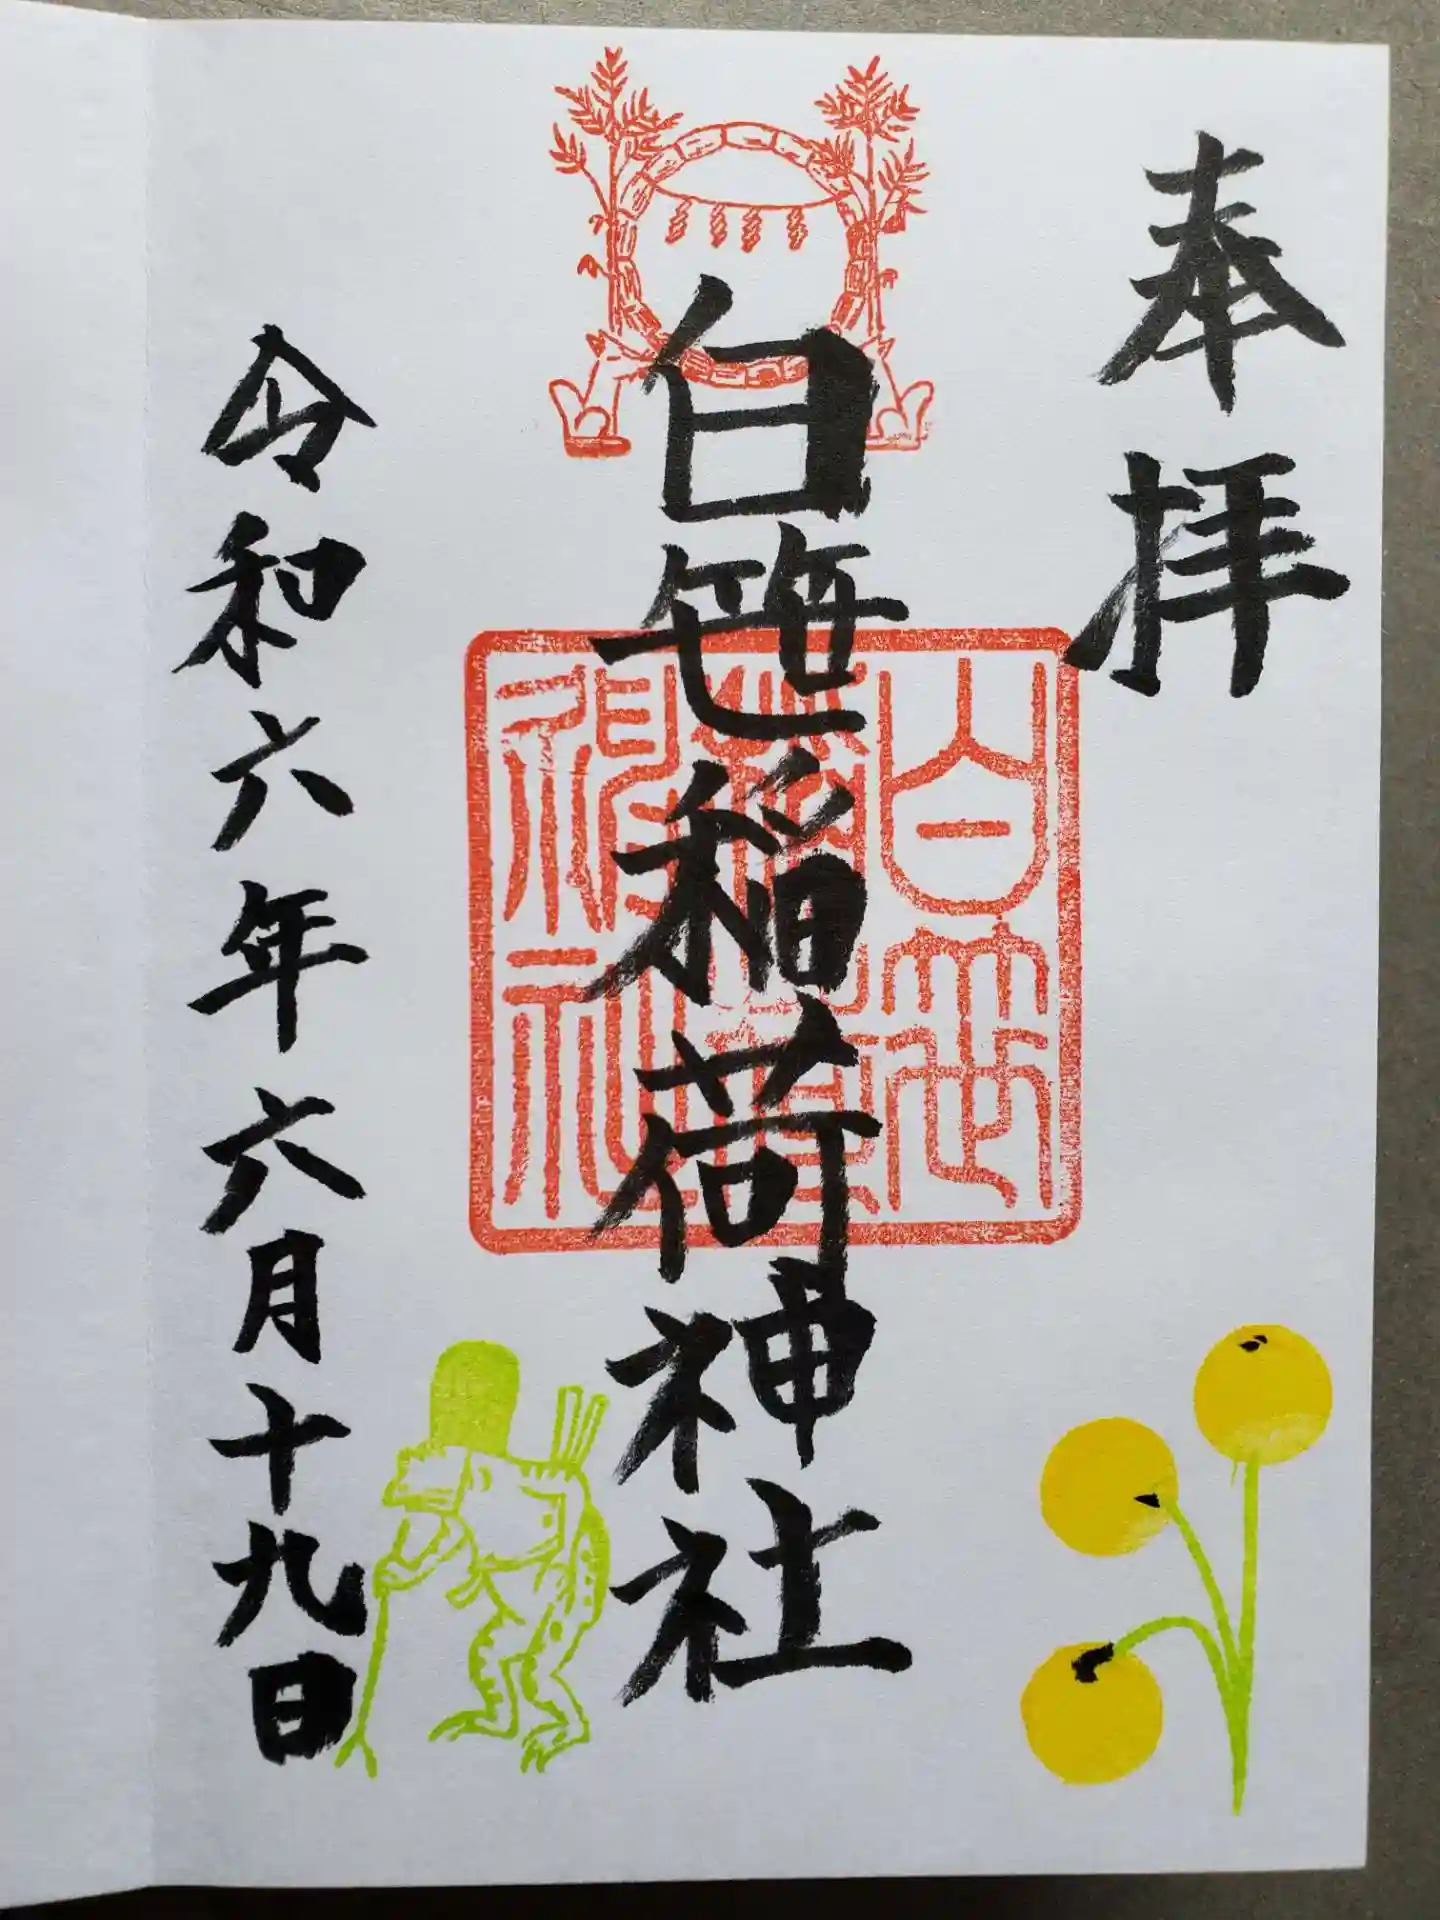 奉拝
白笹稲荷神社
白笹
稲荷
神社
令和六年六月十九日